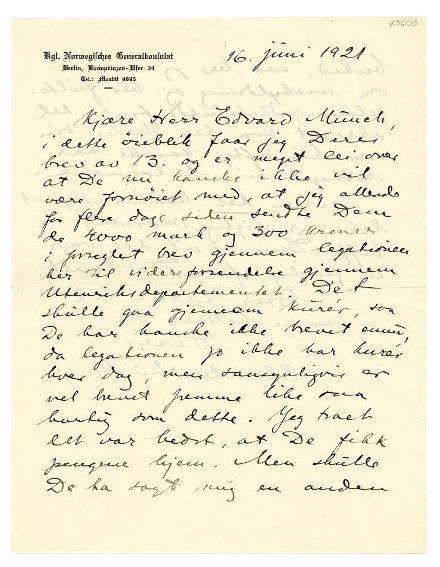 K3603
Kgl. Norwegisches Generalkonsulat
Berlin, Kronprinzen-Ufer 24
Tel.: Moabit 9695
16. juni 1921
Kjære Herr Edvard Münch,
i dette öieblik faar jeg Deres
brev av 13. og er meget lei over
at De nu kanske ikke vil
være fornöiet med, at jeg allerede
for flere dage siden sendte Dem
de 4000 mark og 300 kroner
i forseglet brev gjennem legationen
her til videreforsendelse gjennem
Utenriksdepartementet. Det
skulle gaa gjennem kurér, saa
De har kanske ikke brevet ennu,
da legationen jo ikke har kurér
hver dag, men sansynligvis er
vel brevet fremme like saa
hurtig som dette. Jeg troet
det var bedst, at De fikk
pengene hjem. Men skulle
De ha sagt mig en anden